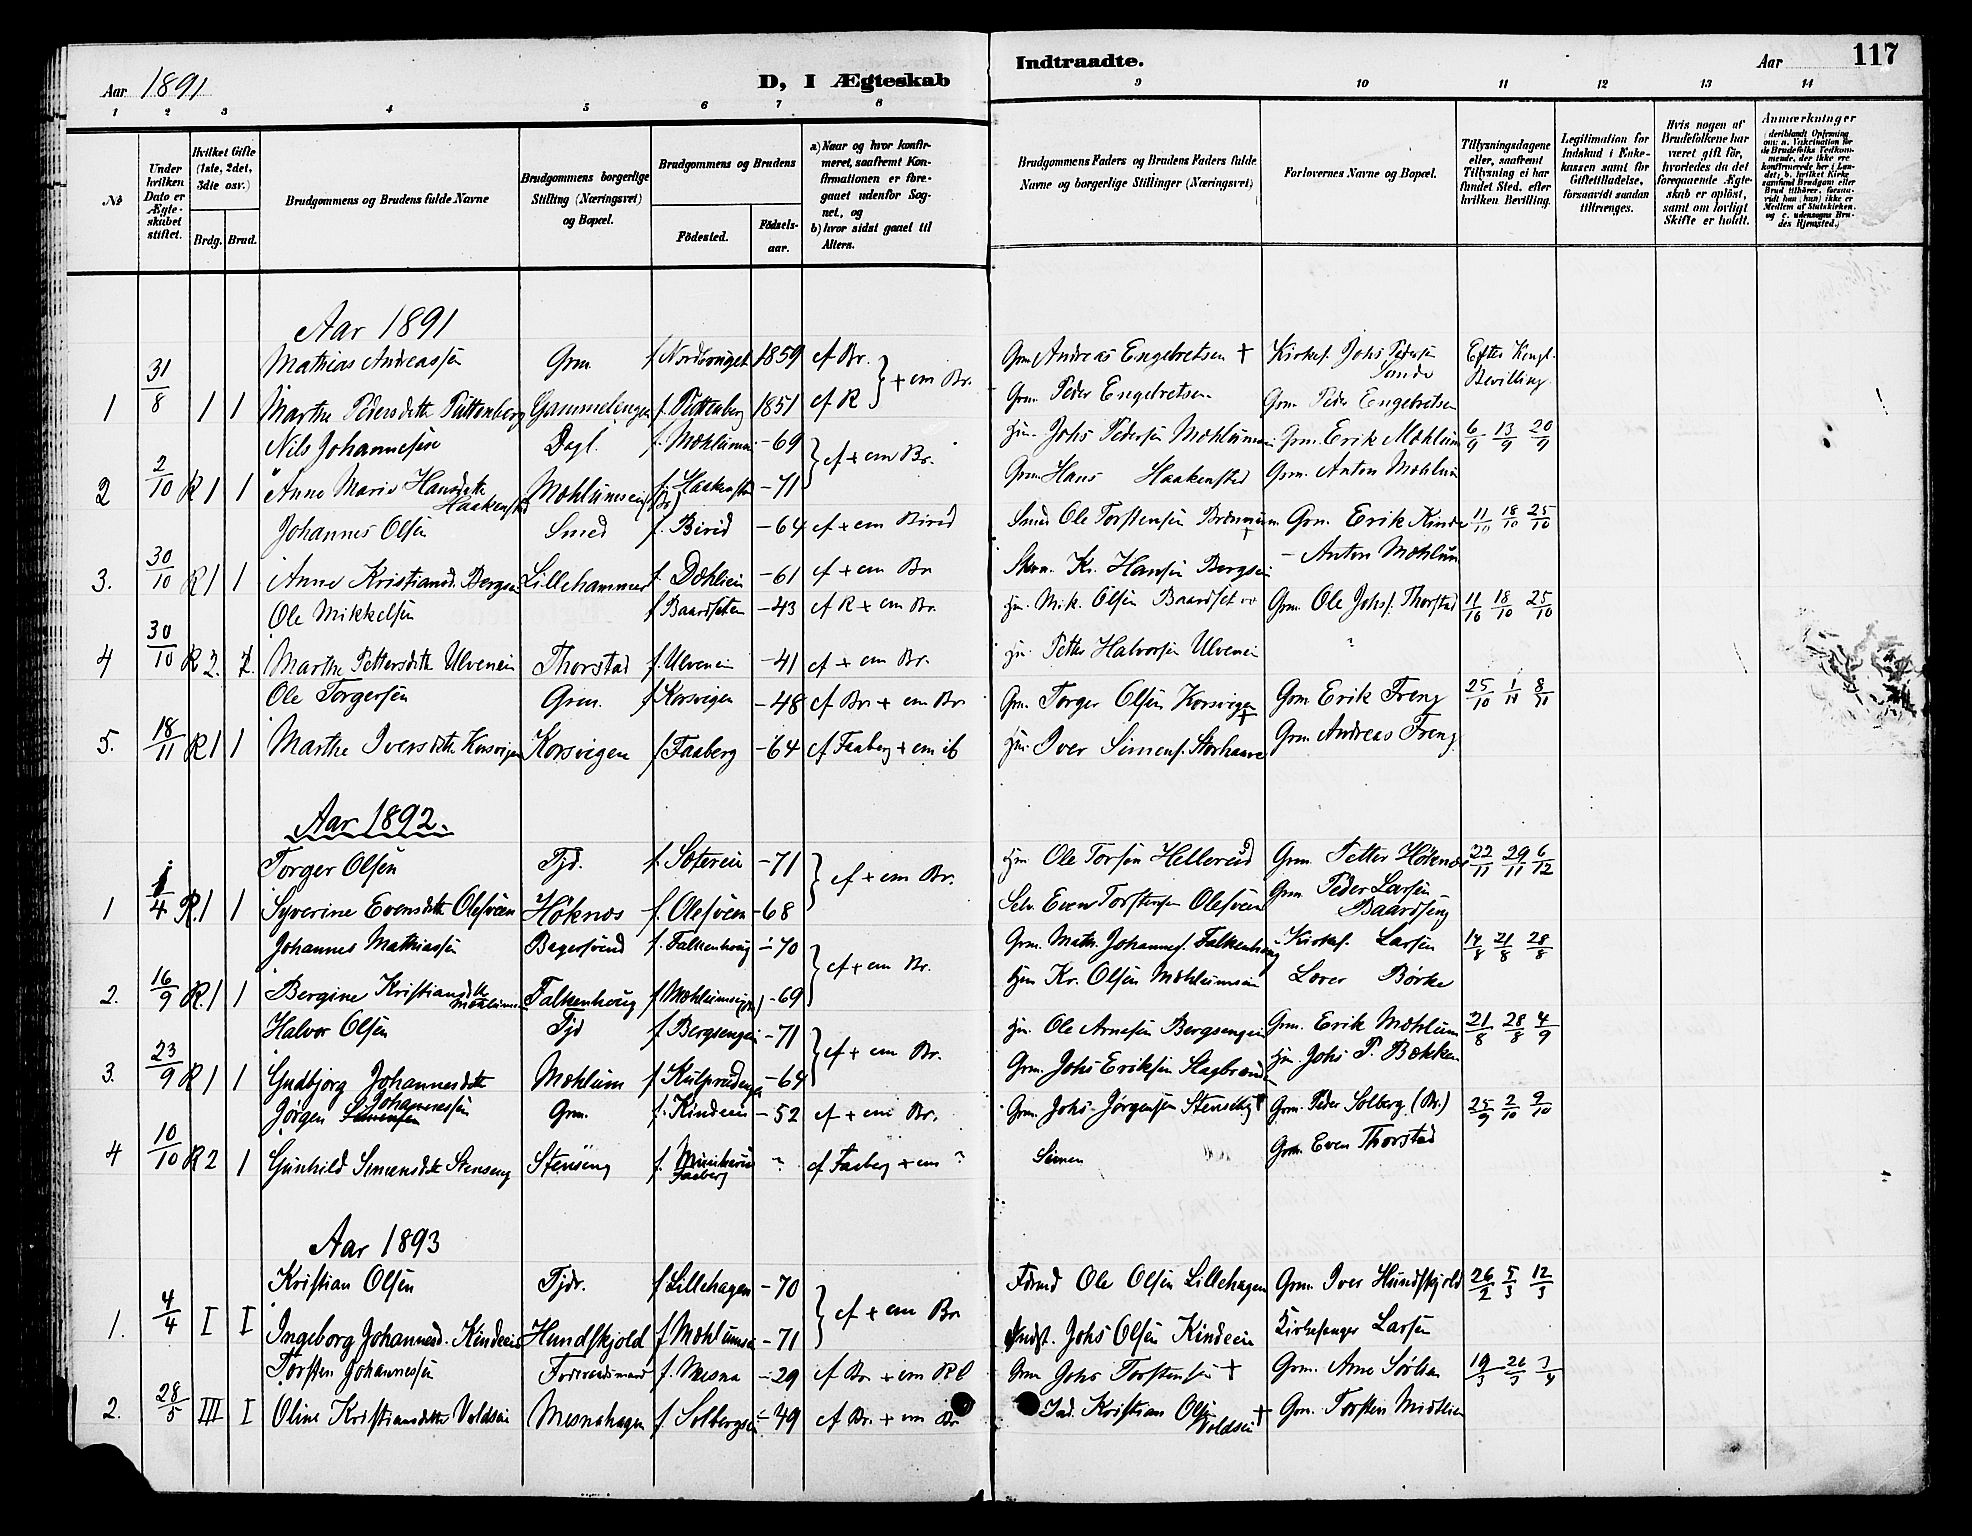 Aar 1891
D, I Ægteskab
Indtraadte.
Aar
117
1 2 3 4 5 6 7 8 9 10 11 12 13 14
No
Under hvilken Dato er Ægteskabet stiftet.
Hvilket Gifte (1ste, 2det, 3die osv.)
Brdg. Brud.
Brudgommens og Brudens fulde Navne
Brudgommens borgerlige Stilling (Næringsvei) og Bopæl.
Brudgommens og Brudens
Födested.
Födselsaar.
a) Naar og hvor konfirmeret, saafremt Konfirmationen er foregaaet udenfor Sognet, og
b) hvor sidst gaaet til Alters.
Brudgommens Faders og Brudens Faders fulde Navne og borgerlige Stillinger (Næringsvei)
Forlovernes Navne og Bopæl.
Tillysningsdagene eller, saafremt Tillysning ei har fundet Sted, efter hvilken Bevilling.
Legitimation for Indskud i Enkekassen samt for Giftetilladelse, forsaavidt saadan tiltrænges.
Hvis nogen af Brudefolkene har været gift för, hvorledes da det foregaaende Ægteskab er oplöst, samt om lovligt Skifte er holdt.
Anmærkninger
Aar 1891
Mathias Andreassen Grm. f Nordhouget 1859 cf Br. } + em Br. Grm Andreas Engebretsen + Kirkes. Johs Pedersen Sande Efter Kongl. Bevilling.
1 31/8 1 1 Marthe Pedersdtt Puttenberg Gammelingen f. Puttenberg 1851 cf R Grm. Peder Engebretsen Grm Peder Engebretsen
Nils Johannesen Dagl. f. Mæhlumen -69 } cf + em Br. Hjm. Johs Pedersen Mæhlumen Grm. Erik Mæhlum 6/9 13/9 20/9
2 2/10 R 1 1 Anne Marie Hansdtt Haakenstad Mæhlumseie f. Haakenstad (Br) -71 Grm Hans Haakenstad Grm. Anton Mæhlum
Johannes Olsen Smed f. Birid -64 cf + em Birid Smed Ole Torstensen + Grm. Erik Kinde 11/10 18/10 25/10
3. 30/10 R 1 1 Anne Kristiansd. Bergsen Lillehammer f. Dæhlien -61 cf + em Br Kr. Hansen Bergsen - Anton Mæhlum
Ole Mikkelsen f Baardseten -43 cf R + em Br. Hjm. Mik. Olsen Baardset Grm. Ole Johs. Thorstad 11/10 18/10 25/10
4 30/10 R 2. 2. Marthe Pettersdtt Ulveneie Thorstad f. Ulveneie -41 cf + em Br. Hjm. Petter Halvorsen Ulveneie "
Ole Torgersen Grm. f Korsvigen -48 cf Br + em Br Grm. Torger Olsen Korsvigen + Grm Erik Freng 25/10 1/11 8/11
5. 18/11 R 1 1 Marthe Iversdtt. Korsvigen Korsvigen f Faaberg -64 cf Faaberg + em ib Hjm. Iver Simens. Storhaave Grm Andreas Freng
Aar 1892.
Torger Olsen Tjd. f. Sætereie -71 } cf + em Br. Hjm Ole Torsen Hellerud Grm. Petter Höknes 22/11 29/11 6/12
1 1/4 R. 1 1 Syverine Evensdtt Olesveen Höknes f. Olesveen -68 Selv. Even Torstensen Olesveen Grm Peder Larsen Baardseng
Johannes Mathiassen Bagersvend f. Falkenhaug -70 } cf + em Br. Grm. Math. Johannes. Falkenhaug Kirkes. Larsen 14/8 21/8 28/8
2. 16/9 R. 1 1 Bergine Kristiansdtt Mæhlumen Falkenhaug f Mæhlumseie (Br) -69 Hjm Kr. Olsen Mæhlumseie Lærer Börke
Halvor Olsen Tjd f. Bergsengeie -71 } cf + em Br. Hjm. Ole Arnesen Bergsengeie Grm. Erik Mæhlum 21/8 28/8 4/9
3. 23/9 R 1 1 Gudbjørg Johannesdtt Mæhlum f Kulprudengen -64 Grm. Johs Eriksen Skogbrænden Hjm. Johs P. Bækken
Jørgen Simensen Johannessen Grm. f. Kindeeie -52 cf + em Br. Grm. Johs. Jørgensen Stenseng + Grm. Peder Solberg (Br.) 25/9 2/10 9/10
4 10/10 R 2 1 Gunhild Simensdtt Stenseng Stenseng f. Faaberg ? cf Faaberg + em ? Simen Grm. Even Thorstad
Aar 1893
Kristian Olsen Tjdr. f Lillehagen -70 } cf + em Br Forad Ole Olsen Lillehagen Grm. Iver Hundskjold 26/2 5/3 12/3
1. 4/4 I I Ingeborg Johannesd. Kindeeie Hundskjold f. Mæhlumseie -71 Indst. Johs Olsen Kindeeie Kirkesanger Larsen
Torsten Johannessen Føderaadsmand f. Mesna -29 cf Br + em Rl Grm Johs Torstensen + Grm. Arne Sørlien 19/3 26/3 3/4
2. 28/5 III I Oline Kristiansdatter Voldseie Mesnahagen f Solbergseie -49 cf Br. + em Br Ind. Kristian Olsen Voldseie + Grm. Torsten Midtlien